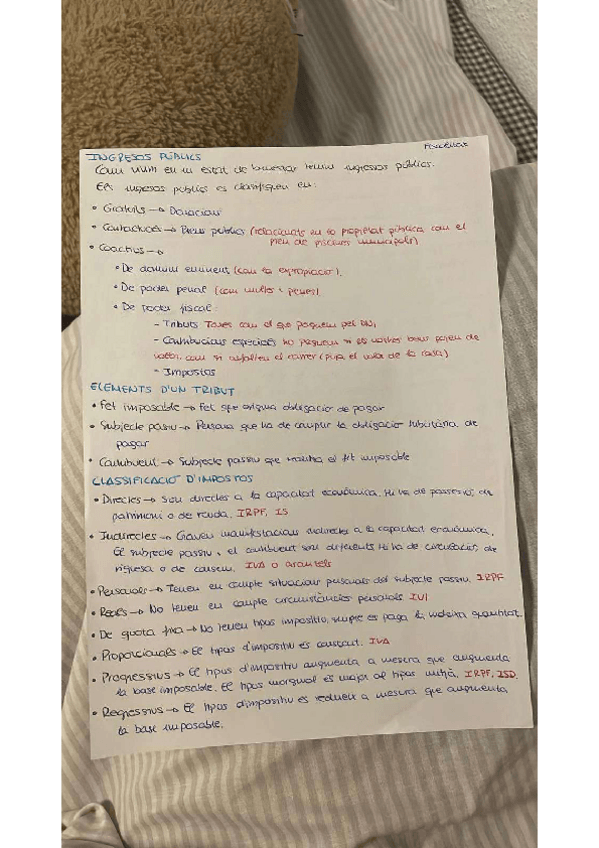 INGRESOS PÚBLICS
Com vivim en un estat de benestar tenim ingressos públics.
Els ingressos públics es classifiquen en:
• Gratuïts → Donacions
• Contractuals → Preus públics (relacionats en la propietat pública com el
preu de piscines municipals)
• Coactius →
• De domini eminent (com la expropiació).
• De poder penal (com multes i penes)
• De poder fiscal:
- Tributs Taxes com el que paguem pel DNI
- Contribucions especials ho paguem si els nostres bens pugen de
valor, com si asfalten el carrer (puja el valor de la casa)
- Impostos
ELEMENTS D'UN TRIBUT
• Fet imposable → Fet que origina obligació de pagar
• Subjecte passiu → Persona que ha de complir la obligació tributària de
pagar
• Contribuent → Subjecte passiu que realitza el fet imposable
CLASSIFICACIÓ D'IMPOSTOS
• Directes → Són directes a la capacitat econòmica. Hi ha de possessió, de
patrimoni o de renda. IRPF, IS
• Indirectes → Graven manifestacions indirectes a la capacitat econòmica.
El subjecte passiu i el contribuent són diferents. Hi ha de circulació de
riquesa o de consum. IVA o aranzels
• Personals → Tenen en compte situacions personals del subjecte passiu. IRPF
• Reals → No tenen en compte circumstàncies personals IVI
• De quota fixa → No tenen tipus impositiu, sempre es paga la mateixa quantitat.
• Proporcionals → El tipus d'impositiu és constant. IVA
• Progressius → El tipus d'impositiu augmenta a mesura que augmenta
la base imposable. El tipus marginal és major al tipus mitjà. IRPF, ISD.
• Regressius → El tipus d'impositiu es redueix a mesura que augmenta
la base imposable.